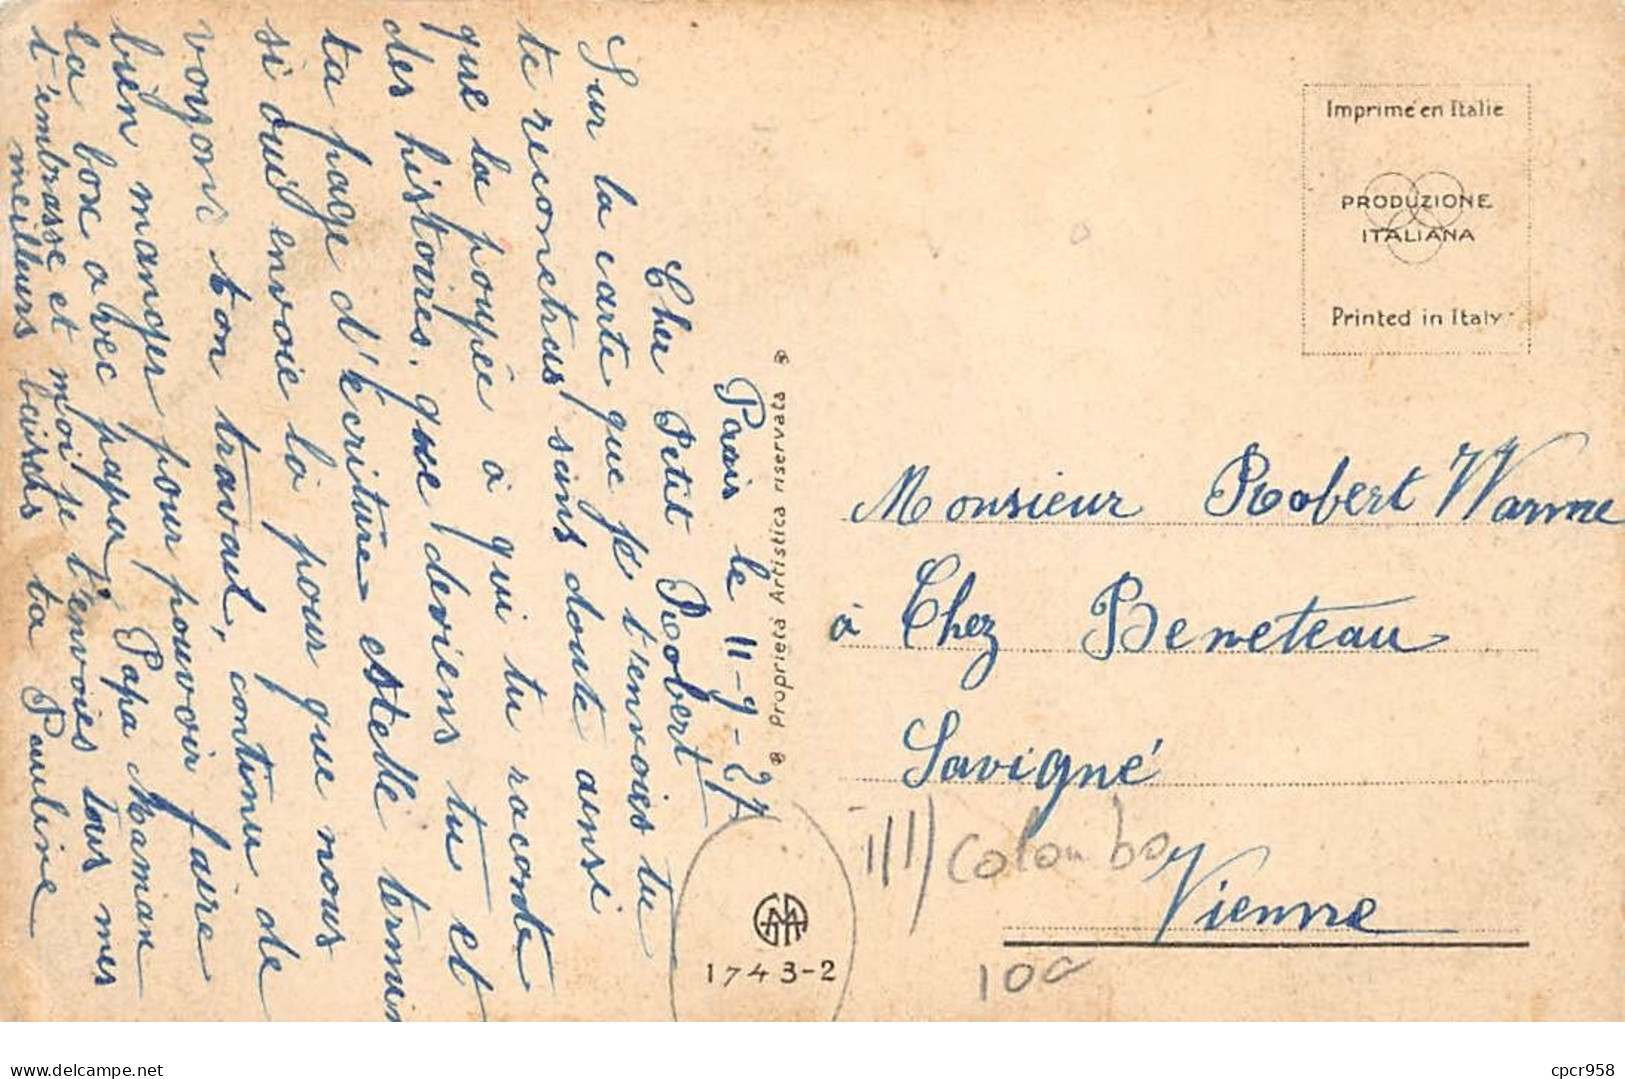 Paris le 11-9-27
Cher Petit Robert
Sur la carte que je t'envoies tu
te reconetras sans doute ainsi
que la poupée à qui tu raconte
des histoires. que deviens tu et
ta page d'écriture estelle termin
si oui envoie la pour que nous
voyons ton travail, continu de
bien manger pour pouvoir faire
la boxe avec papa, Papa Maman
t'embrasse et moi je t'envoies tous mes
meilleurs baisers ta Pauline
® Proprietà Artistica riservata ®
Imprimé en Italie
PRODUZIONE
ITALIANA
Printed in Italy
Monsieur Robert Warme
à Chez Beneteau
Savigné
Vienne
Colombo
100
1743-2
cpcr958